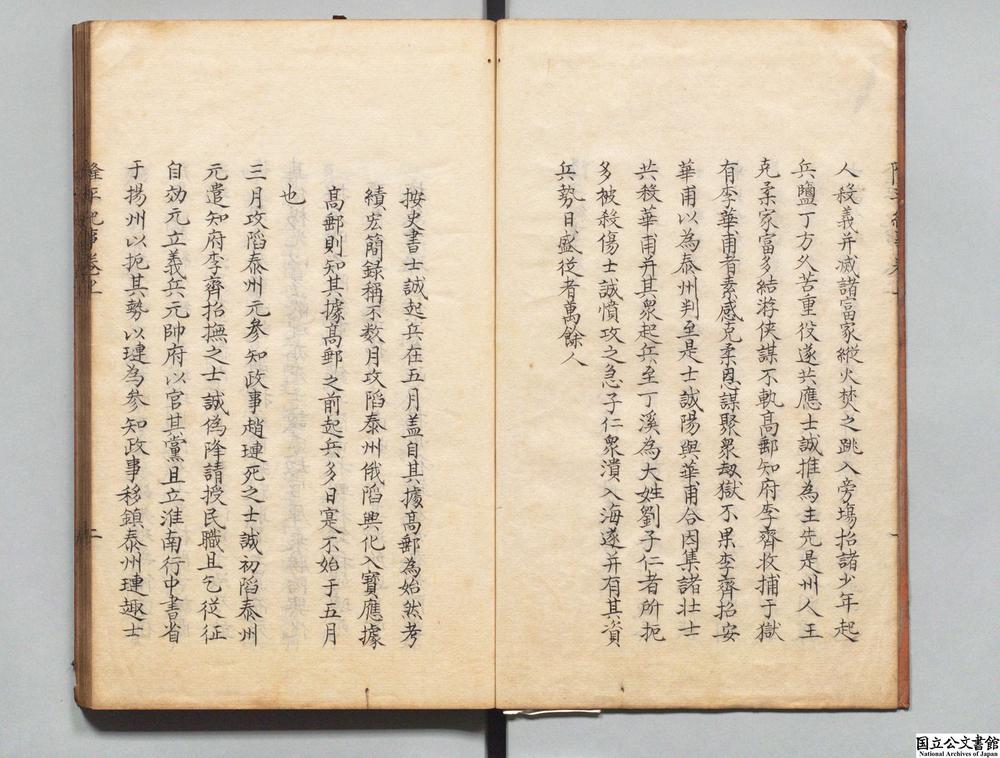 人殺義并滅諸富家縱火焚之跳入旁塲招諸少年起
兵鹽丁方久苦重役遂共應士誠推為主先是州人王
克柔家富多結游俠謀不軌髙郵知府李齊收捕于獄
有李華甫者素感克柔恩謀聚衆刼獄不果李齊招安
華甫以為泰州判至是士誠陽與華甫合因集諸壮士
共殺華甫并其衆起兵至丁溪為大姓劉子仁者所扼
多被殺傷士誠憤攻之急子仁衆潰入海遂并有其資
兵勢日盛從者萬餘人
按史書士誠起兵在五月盖自其據髙郵為始然考
續宏簡録稱不数月攻陷泰州俄陷興化入寳應據
髙郵則知其據髙郵之前起兵多日寔不始于五月
也
三月攻陷泰州元參知政事趙璉死之士誠初陷泰州
元遣知府李齊招撫之士誠偽降請授民職且乞從征
自効元立義兵元帥府以官其黨且立淮南行中書省
于揚州以扼其勢以璉為參知政事移鎮泰州璉趣士
隆平紀事卷上
二
国立公文書館
National Archives of Japan